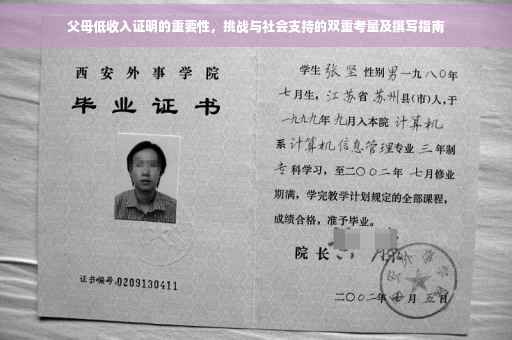 父母低收入证明的重要性，挑战与社会支持的双重考量及撰写指南
西安外事学院
毕业证书
证书编号:0209130411
学生 张坚 性别 男 一九八〇年
七月生，江苏省 苏州县(市)人，于
一九九九年 九月入本院 计算机
系 计算机信息管理 专业 三 年制
专 科学习，至二〇〇二年 七月修业
期满，学完教学计划规定的全部课程，
成绩合格，准予毕业。
院长
二〇〇二年 七 月 五 日